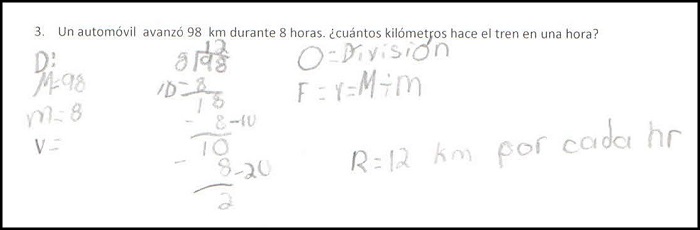 3. Un automóvil avanzó 98 km durante 8 horas. ¿cuántos kilómetros hace el tren en una hora?
D:
M=98
m=8
V=
12
8 98
1D=8
18
- 8-1U
10
- 8-2U
2
O=División
F=V=M÷m
R=12 km por cada hr